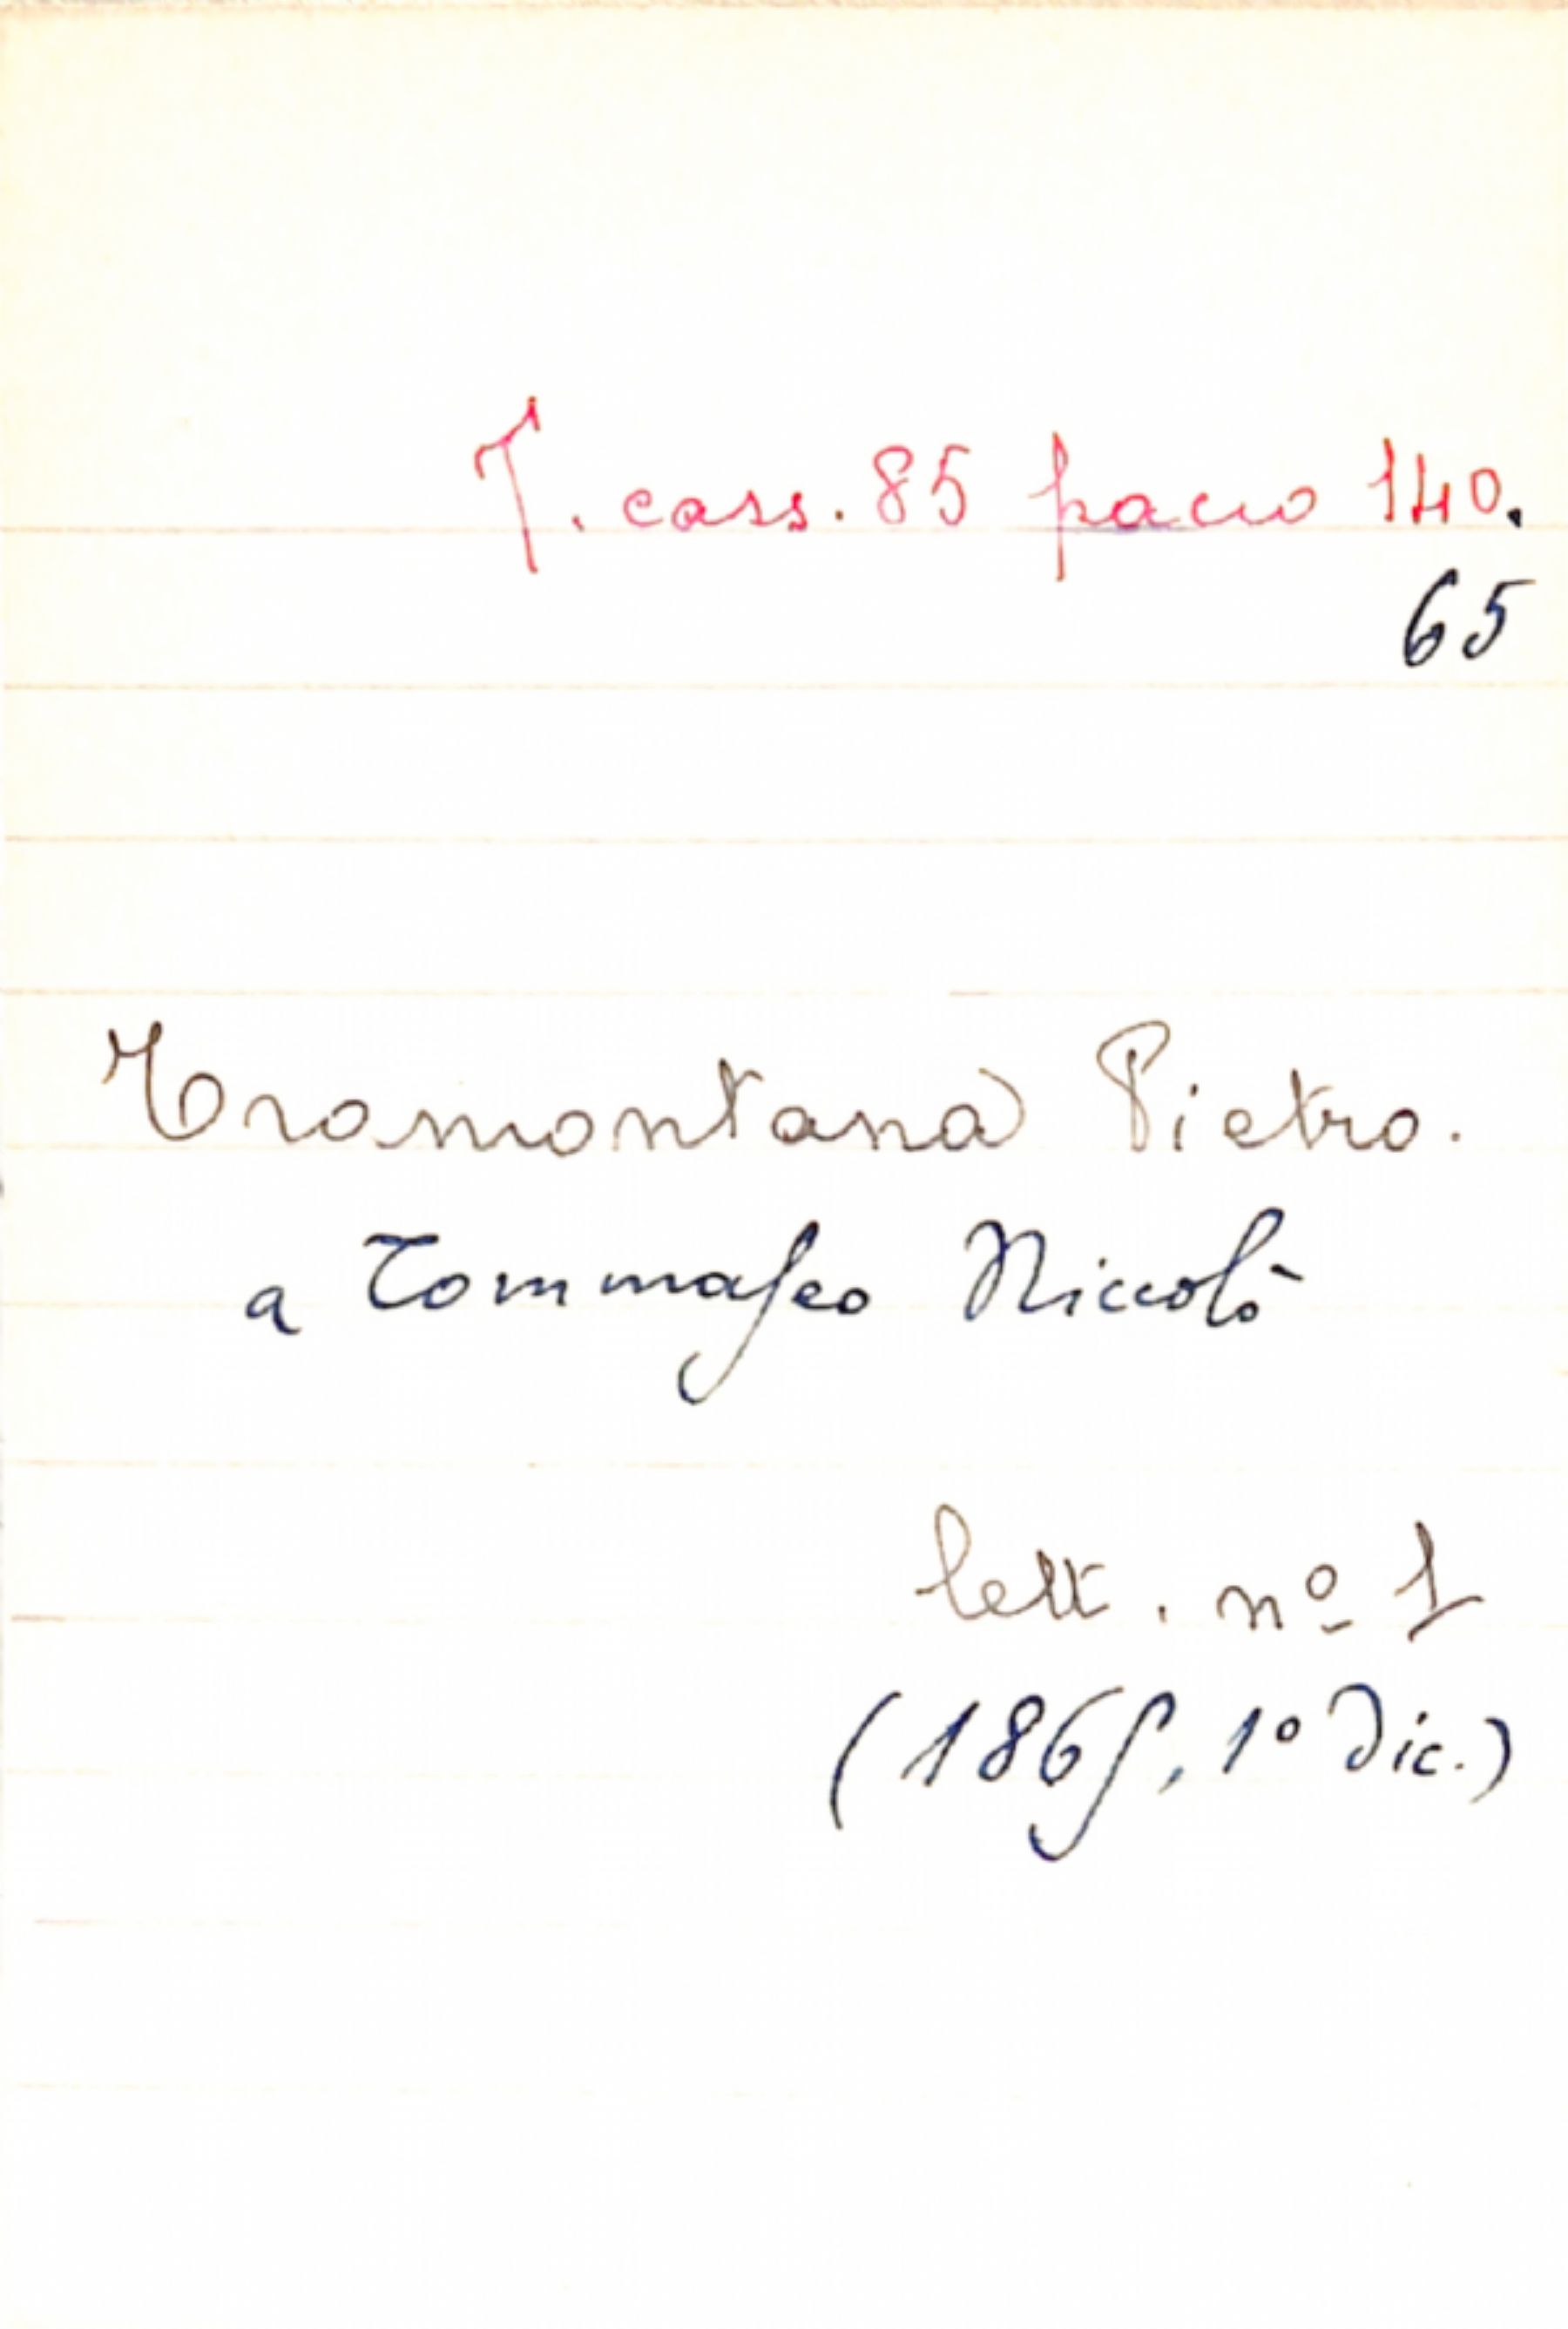 T. cass. 85 pacco 140.
65
Tramontana Pietro.
a Tommaseo Niccolò
lett. nº 1
(1865, 1º Dic.)